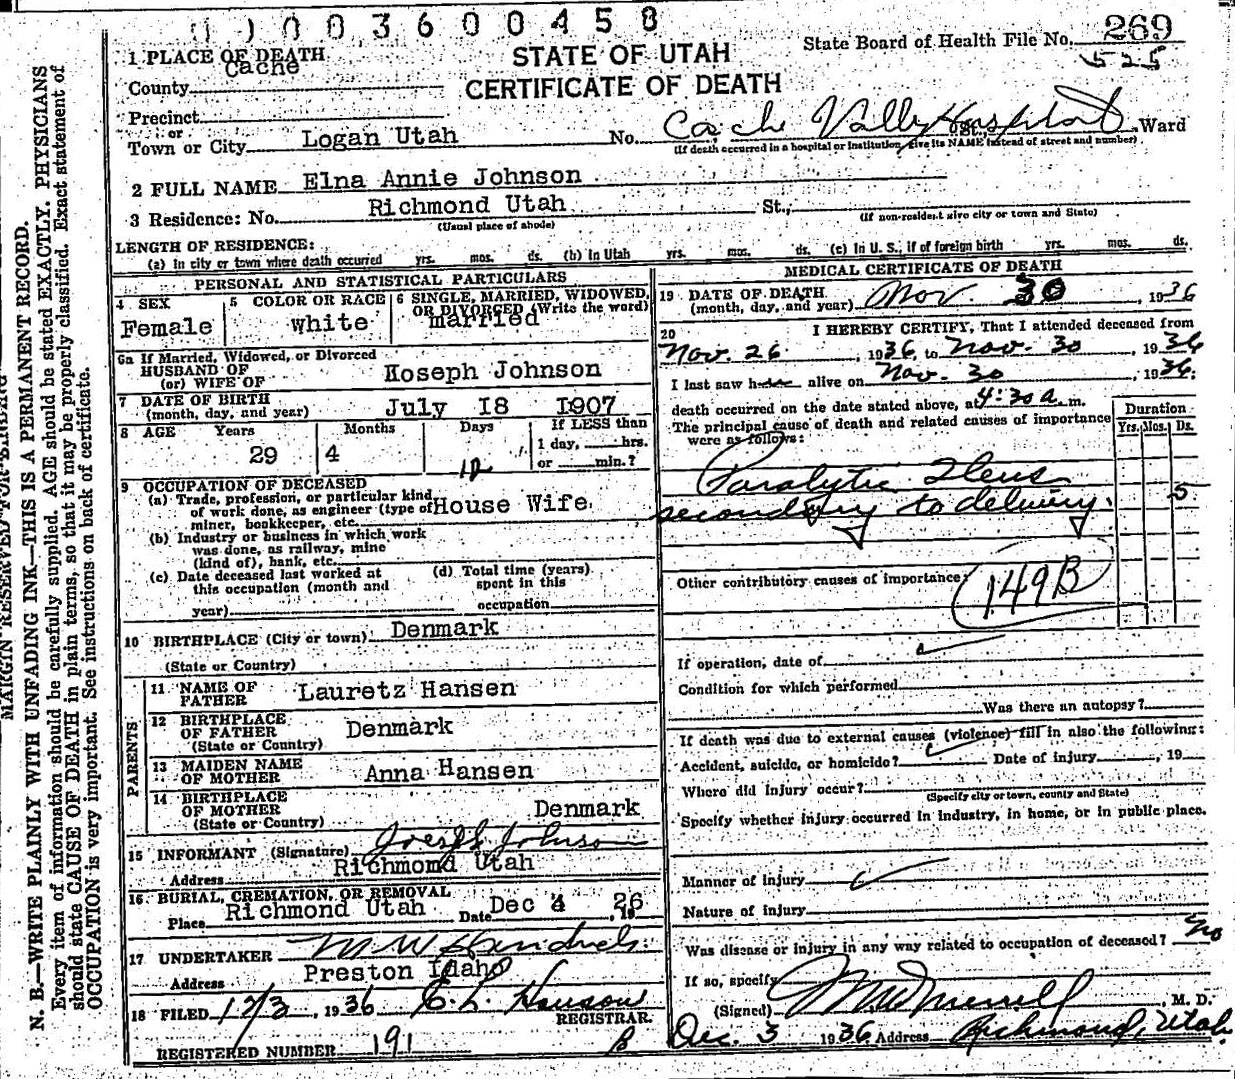 1003600458
STATE OF UTAH
CERTIFICATE OF DEATH
State Board of Health File No. 269
525
1 PLACE OF DEATH
County Cache
Precinct
or
Town or City Logan Utah No. Cache Vally Hospital St., Ward
(If death occurred in a hospital or institution, give its NAME instead of street and number)
2 FULL NAME Elna Annie Johnson
3 Residence: No. Richmond Utah St.,
(Usual place of abode) (If non-resident give city or town and State)
LENGTH OF RESIDENCE:
(a) in city or town where death occurred yrs. mos. ds. (b) In Utah yrs. mos. ds. (c) In U. S., if of foreign birth yrs. mos. ds.
PERSONAL AND STATISTICAL PARTICULARS
4 SEX
Female
5 COLOR OR RACE
White
6 SINGLE, MARRIED, WIDOWED,
OR DIVORCED (Write the word)
married
6a If Married, Widowed, or Divorced
HUSBAND OF
(or) WIFE OF Hoseph Johnson
7 DATE OF BIRTH
(month, day, and year) July I8 I907
8 AGE Years Months Days If LESS than
1 day, hrs.
or min.?
29 4 12
9 OCCUPATION OF DECEASED
(a) Trade, profession, or particular kind
of work done, as engineer (type of
miner, bookkeeper, etc.
House Wife
(b) Industry or business in which work
was done, as railway, mine
(kind of), bank, etc.
(c) Date deceased last worked at
this occupation (month and
year)
(d) Total time (years)
spent in this
occupation
10 BIRTHPLACE (City or town) Denmark
(State or Country)
PARENTS
11 NAME OF
FATHER Lauretz Hansen
12 BIRTHPLACE
OF FATHER
(State or Country) Denmark
13 MAIDEN NAME
OF MOTHER Anna Hansen
14 BIRTHPLACE
OF MOTHER
(State or Country) Denmark
15 INFORMANT (Signature) Joseph Johnson
Address Richmond Utah
16 BURIAL, CREMATION, OR REMOVAL
Place Richmond Utah Date Dec 4 26
17 UNDERTAKER M W Hendricks
Address Preston Idaho
18 FILED 12/3, 1936 C. L. Hanson
REGISTRAR.
REGISTERED NUMBER 191
B
MEDICAL CERTIFICATE OF DEATH
19 DATE OF DEATH
(month, day, and year) Nov. 30, 1936
20 I HEREBY CERTIFY, That I attended deceased from
Nov. 26, 1936, to Nov. 30, 1936
I last saw her alive on Nov. 30, 1936;
death occurred on the date stated above, at 4:30 a. m.
The principal cause of death and related causes of importance
were as follows:
Duration
Yrs. Mos. Ds.
Paralytic Ileus
5
secondary to delivery.
Other contributory causes of importance:
149B
If operation, date of
Condition for which performed
Was there an autopsy?
If death was due to external causes (violence) fill in also the following:
Accident, suicide, or homicide? Date of injury, 19
Where did injury occur?
(Specify city or town, county and State)
Specify whether injury occurred in industry, in home, or in public place.
Manner of injury
Nature of injury
Was disease or injury in any way related to occupation of deceased? No
If so, specify
(Signed) M. D.
Dec. 3 1936 Address Richmond, Utah.
MARGIN RESERVED FOR BINDING
N. B.—WRITE PLAINLY WITH UNFADING INK—THIS IS A PERMANENT RECORD.
Every item of information should be carefully supplied. AGE should be stated EXACTLY. PHYSICIANS
should state CAUSE OF DEATH in plain terms, so that it may be properly classified. Exact statement of
OCCUPATION is very important. See instructions on back of certificate.